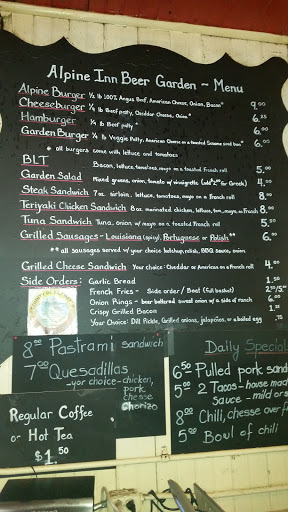 Alpine Inn Beer Garden ~ Menu
Alpine Burger ½ lb 100% Angus Beef, American Cheese, Onion, Bacon* 9.00
Cheeseburger ¼ lb Beef patty, Cheddar Cheese, Onion*
Hamburger ¼ lb Beef patty* 6.25
Garden Burger ¼ lb Veggie Patty, American Cheese on a toasted Sesame seed bun*
* all burgers come with lettuce and tomatoes
BLT Bacon, lettuce, tomatoes, mayo on a toasted French roll 5.00
Garden Salad Mixed greens, onion, tomato w/ vinaigrette
Steak Sandwich 7 oz. sirloin, lettuce, tomatoes, mayo on a French roll 8.00
Teriyaki Chicken Sandwich 8 oz. marinated chicken, lettuce, tom, mayo on French 8.00
Tuna Sandwich Tuna, onion w/ mayo on a toasted French roll 5.50
Grilled Sausages - Louisiana (spicy), Portuguese or Polish** 6.00
** all sausages served w/ your choice ketchup, relish, BBQ sauce, onion
Grilled Cheese Sandwich Your choice: Cheddar or American on a French roll 4.00
Side Orders: Garlic Bread
French Fries - Side order / Bowl (full basket)
Onion Rings - beer battered sweet onion w/ a side of ranch
Crispy Grilled Bacon
Your Choice: Dill Pickle, Grilled onions, jalapeños, or a boiled egg
8⁰⁰ Pastrami sandwich
7⁰⁰ Quesadillas
- yor choice - chicken,
pork
chesse
Chorizo
Regular Coffee
or Hot Tea
$1.50
Daily Special
6.50 Pulled pork sand
5.00 2 Tacos - house mad
sauce - mild or s
8⁰⁰ Chili, chesse over f
5⁰⁰ Bowl of chili